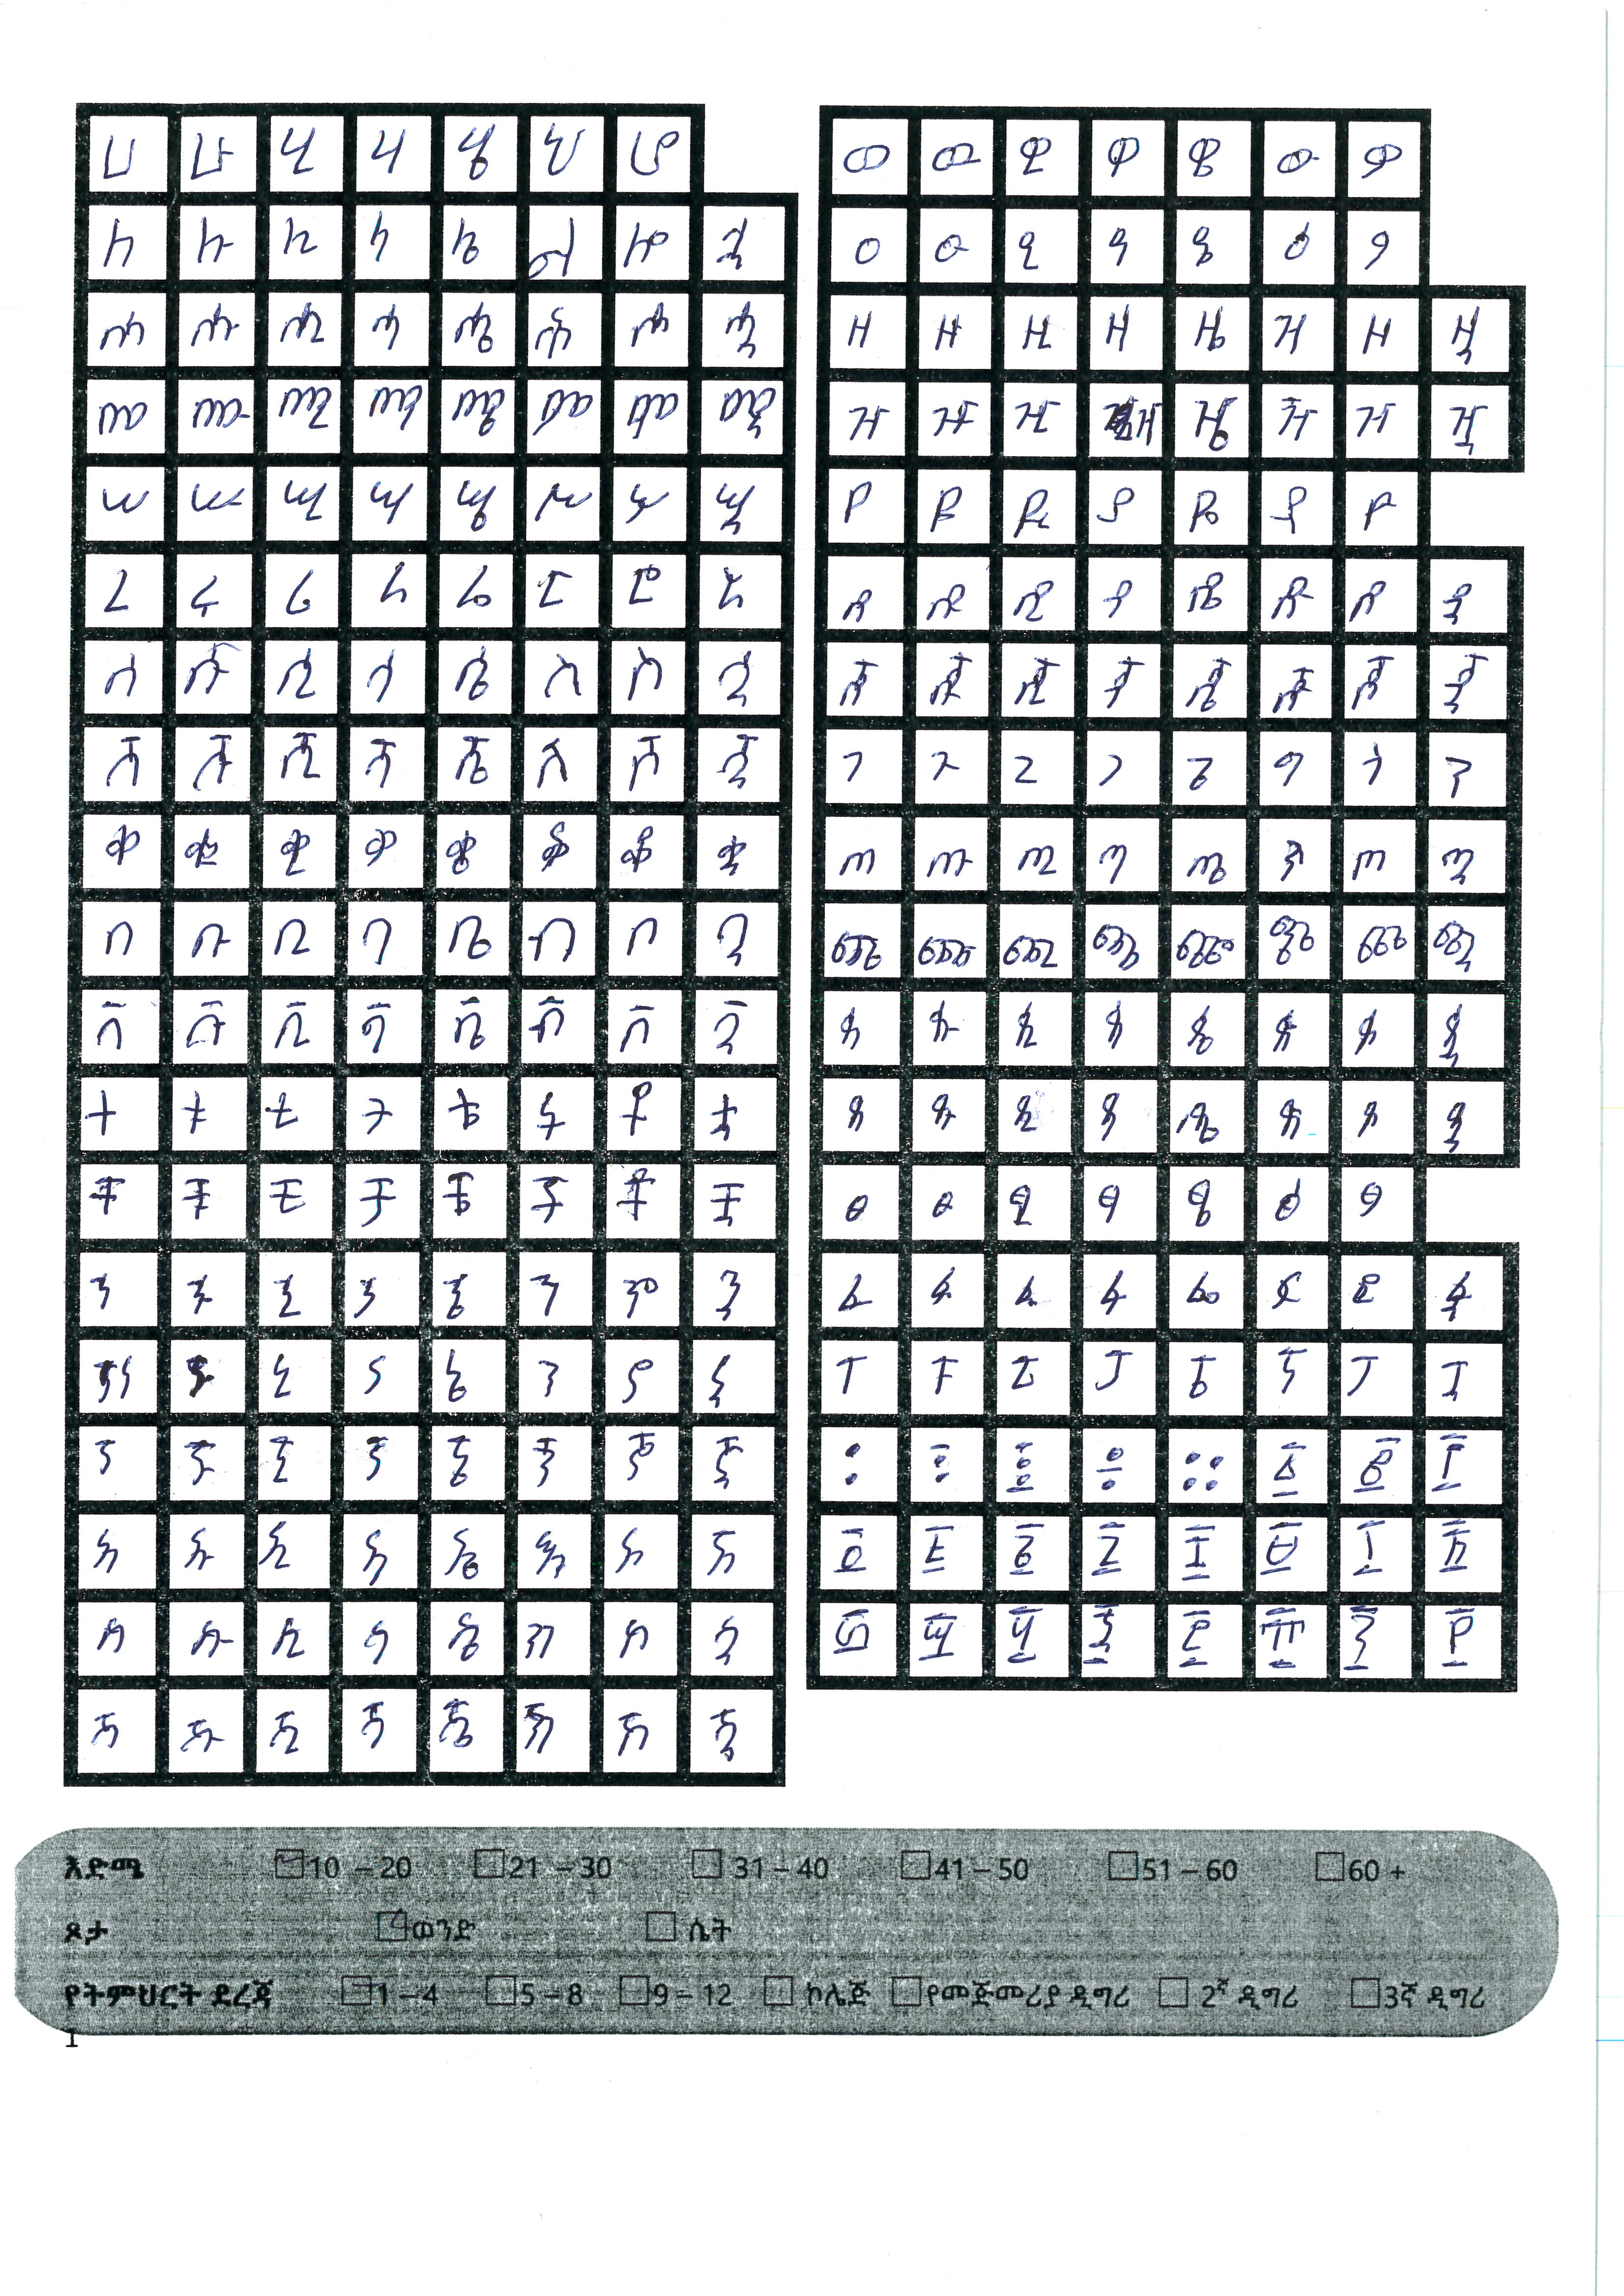 ሀ ሁ ሂ ሃ ሄ ህ ሆ
ለ ሉ ሊ ላ ሌ ል ሎ ሏ
ሐ ሑ ሒ ሓ ሔ ሕ ሖ ሗ
መ ሙ ሚ ማ ሜ ም ሞ ሟ
ሠ ሡ ሢ ሣ ሤ ሥ ሦ ሧ
ረ ሩ ሪ ራ ሬ ር ሮ ሯ
ሰ ሱ ሲ ሳ ሴ ስ ሶ ሷ
ሸ ሹ ሺ ሻ ሼ ሽ ሾ ሿ
ቀ ቁ ቂ ቃ ቄ ቅ ቆ ቋ
በ ቡ ቢ ባ ቤ ብ ቦ ቧ
ቨ ቩ ቪ ቫ ቬ ቭ ቮ ቯ
ተ ቱ ቲ ታ ቴ ት ቶ ቷ
ቸ ቹ ቺ ቻ ቼ ች ቾ ቿ
ኀ ኁ ኂ ኃ ኄ ኅ ኆ ኋ
ነ ኑ ኒ ና ኔ ን ኖ ኗ
ኘ ኙ ኚ ኛ ኜ ኝ ኞ ኟ
አ ኡ ኢ ኣ ኤ እ ኦ ኧ
ከ ኩ ኪ ካ ኬ ክ ኮ ኳ
ኸ ኹ ኺ ኻ ኼ ኽ ኾ ዃ
ወ ዉ ዊ ዋ ዌ ው ዎ
ዐ ዑ ዒ ዓ ዔ ዕ ዖ
ዘ ዙ ዚ ዛ ዜ ዝ ዞ ዟ
ዠ ዡ ዢ ዣ ዤ ዥ ዦ ዧ
የ ዩ ዪ ያ ዬ ይ ዮ
ደ ዱ ዲ ዳ ዴ ድ ዶ ዷ
ጀ ጁ ጂ ጃ ጄ ጅ ጆ ጇ
ገ ጉ ጊ ጋ ጌ ግ ጎ ጓ
ጠ ጡ ጢ ጣ ጤ ጥ ጦ ጧ
ጨ ጩ ጪ ጫ ጬ ጭ ጮ ጯ
ጰ ጱ ጲ ጳ ጴ ጵ ጶ ጷ
ጸ ጹ ጺ ጻ ጼ ጽ ጾ ጿ
ፀ ፁ ፂ ፃ ፄ ፅ ፆ
ፈ ፉ ፊ ፋ ፌ ፍ ፎ ፏ
ፐ ፑ ፒ ፓ ፔ ፕ ፖ ፗ
፡ ፣ ፤ ፥ ። ፩ ፪ ፫
፬ ፭ ፮ ፯ ፰ ፱ ፲ ፳
፴ ፵ ፶ ፷ ፸ ፹ ፺ ፻
እድሜ 10 – 20 21 – 30 31 – 40 41 – 50 51 – 60 60 +
ጾታ ወንድ ሴት
የትምህርት ደረጃ 1 – 4 5 – 8 9 – 12 ኮሌጅ የመጀመሪያ ዲግሪ 2ኛ ዲግሪ 3ኛ ዲግሪ
1